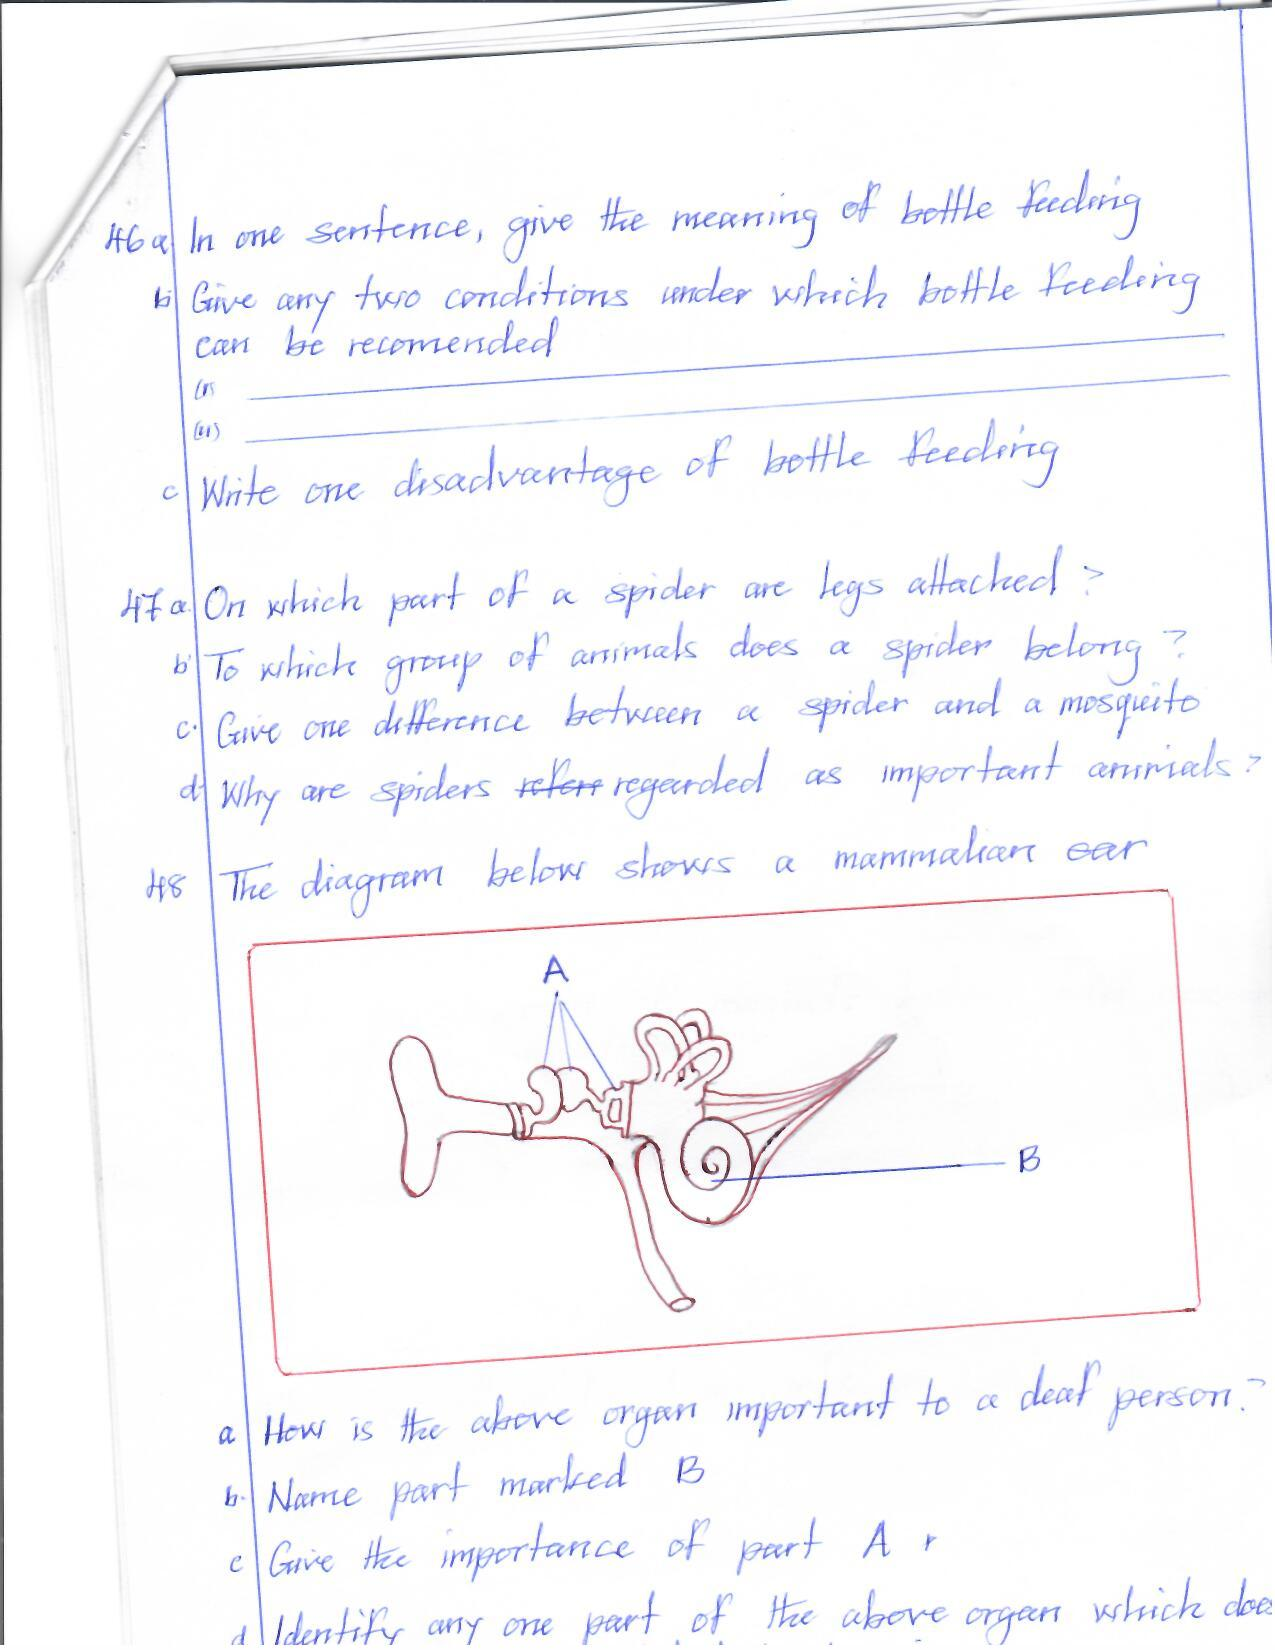 46 a In one sentence, give the meaning of bottle feeding
b Give any two conditions under which bottle feeding
can be recomended
(i)
(ii)
c Write one disadvantage of bottle feeding
47 a. On which part of a spider are legs attached?
b To which group of animals does a spider belong?
c. Give one difference between a spider and a mosquito
d. Why are spiders regarded as important animals?
48 The diagram below shows a mammalian ear
A
B
a How is the above organ important to a deaf person?
b. Name part marked B
c Give the importance of part A
d Identify any one part of the above organ which does